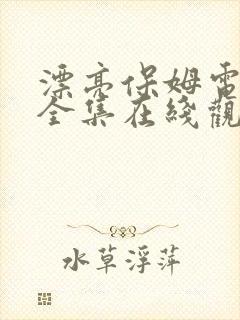 漂亮保姆電
全集在綫觀
水草浮萍